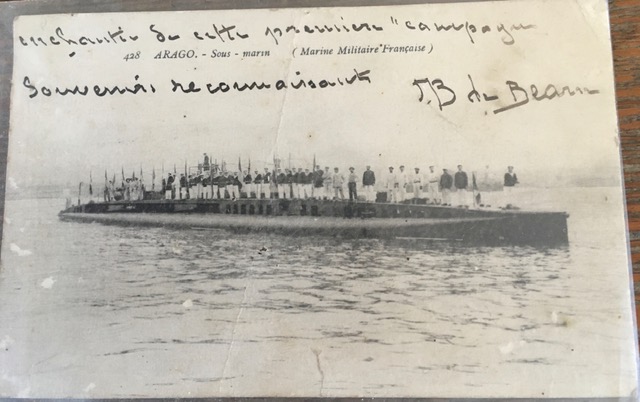 enchantée de cette première "campagne
428 ARAGO. - Sous-marin (Marine Militaire Française)
Souvenirs reconnaissants
de Bearn